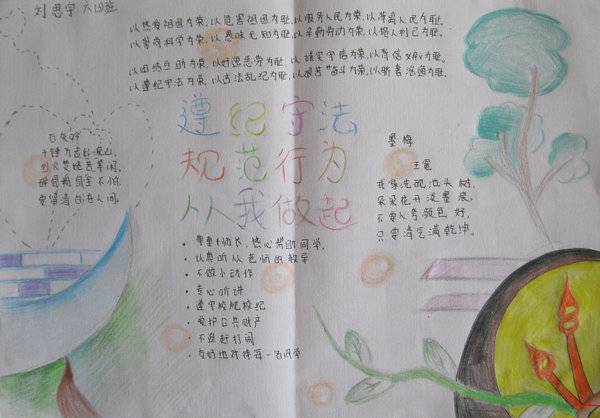 刘思宇 六四班
以热爱祖国为荣,以危害祖国为耻,以服务人民为荣,以背离人民为耻,
以崇尚科学为荣,以愚昧无知为耻,以辛勤劳动为荣,以
以团结互助为荣,以好逸恶劳为耻,以诚实守信为荣,以
以遵纪守法为荣,以违法乱纪为耻,以艰苦奋斗为荣,以骄奢淫逸为耻。
遵纪守法
规范行为
从我做起
石灰吟
千锤万凿出深山,
烈火焚烧若等闲。
粉骨碎身全不怕,
要留清白在人间。
墨梅
王冕
我家洗砚池头树,
朵朵花开淡墨痕。
不要人夸颜色好,
只要清气满乾坤。
尊重师长,热心帮助同学。
认真听从老师的教导
不做小动作
专心听讲
遵守校规校纪
爱护公共财产
不追赶打闹
友好地对待每一名同学